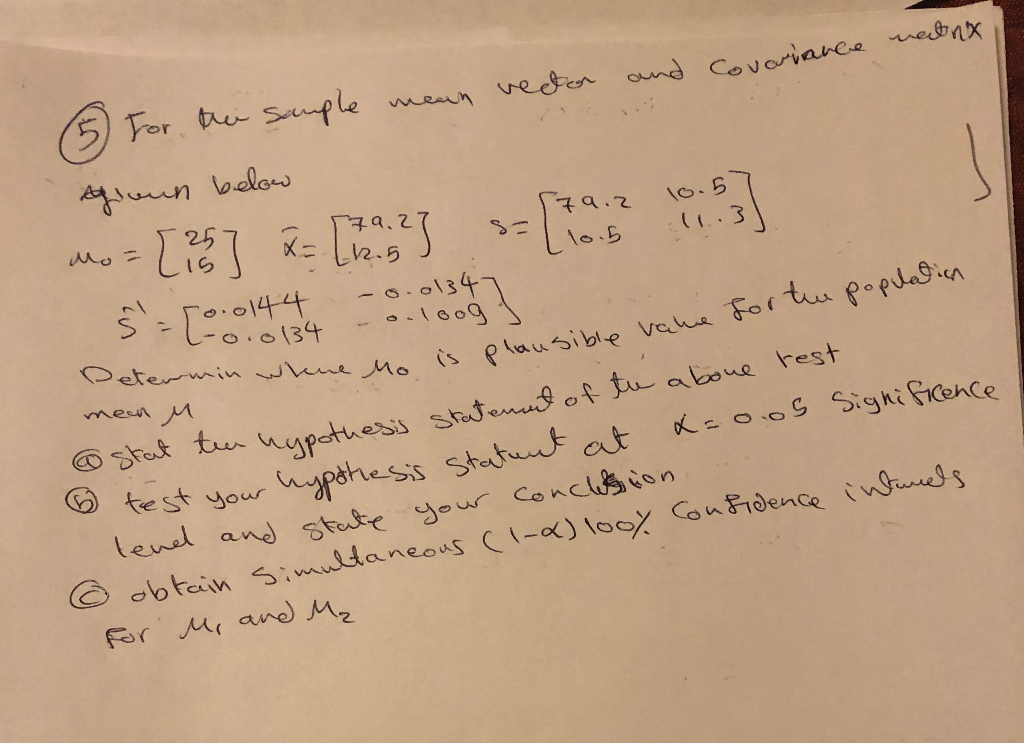 ⑤ For the sample mean vector and Covariance matrix
given below
μ₀ = [25 15] x̄ = [79.2 12.5] s = [79.2 10.5 10.5 11.3]
S⁻¹ = [0.0144 -0.0134 -0.0134 0.1009]
Determin where μ₀ is plausible value for the population
mean μ
ⓐ stat the hypothesis statement of the above test
ⓑ test your hypothesis statment at α = 0.05 Significence
level and state your conclusion
ⓒ obtain Simultaneous (1-α)100% Confidence intervels
For μ₁ and μ₂